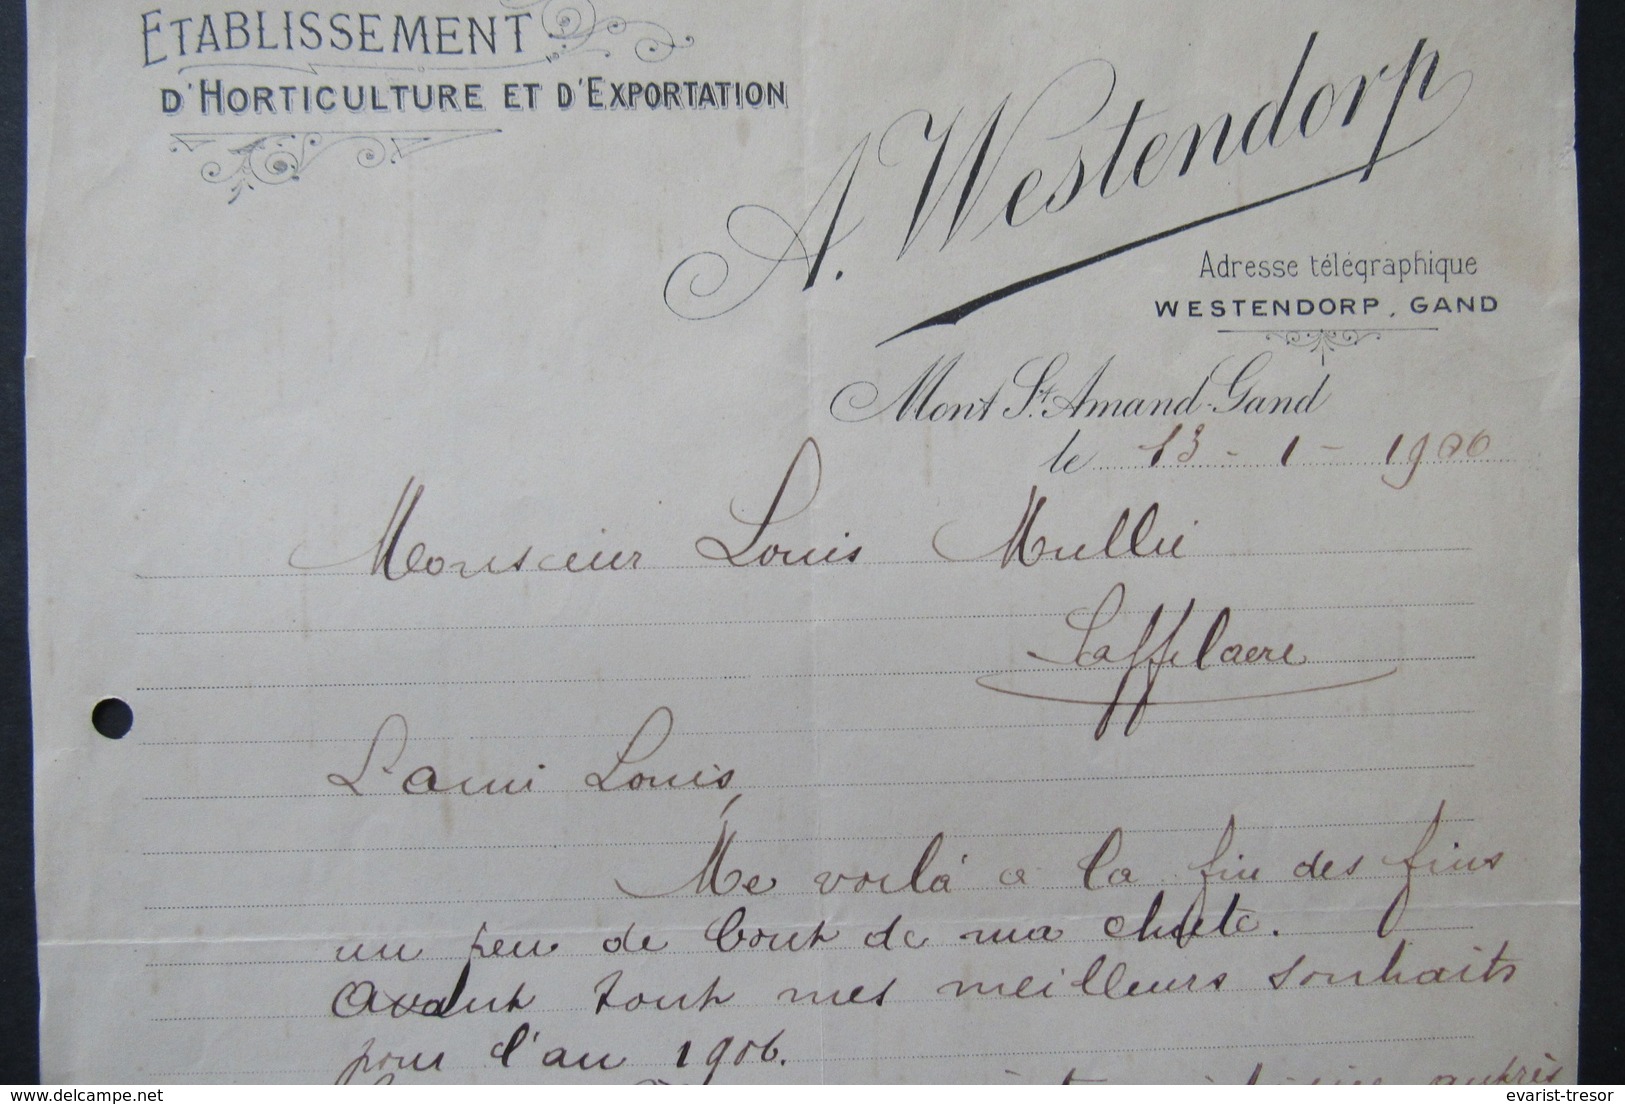 ETABLISSEMENT
D'HORTICULTURE ET D'EXPORTATION
A. Westendorp
Adresse télégraphique
WESTENDORP, GAND
Mont St. Amand-Gand
le 13 - 1 - 1906
Monsieur Louis Mullie
Saffelaere
L'ami Louis,
Me voilà a la fin des fins
un peu de bout de ma chute.
Avant tout mes meilleurs souhaits
pour l'an 1906.
après
www.delcampe.net
evarist-tresor